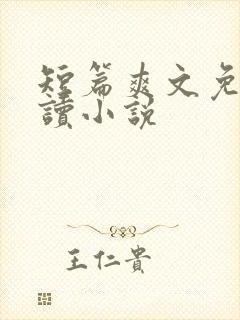 短篇爽文免
讀小説
王仁貴